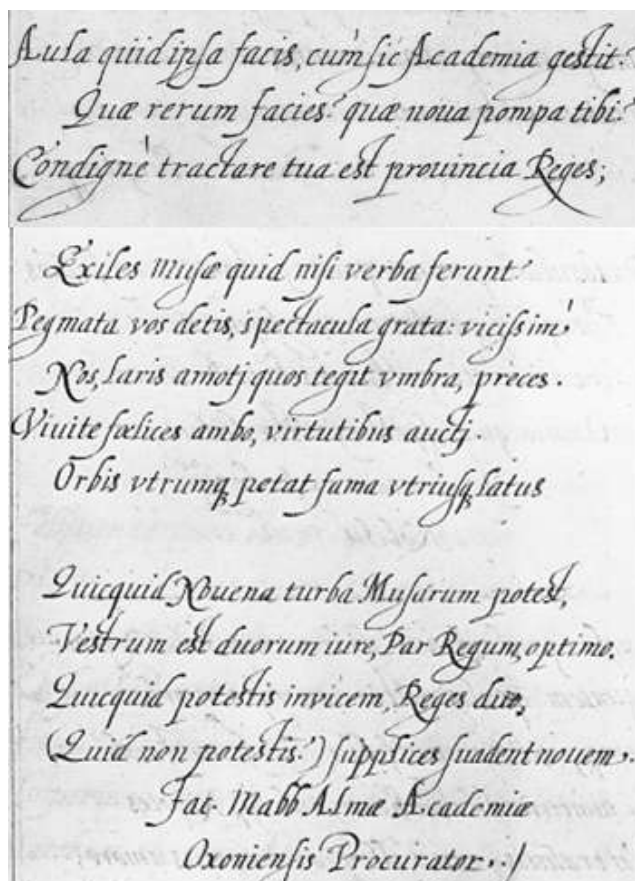 Aula quid ipsa facis, cùm sic Academia gestit?
Quæ rerum facies? quæ noua pompa tibi?
Condignè tractare tua est prouincia Reges;
Exiles Musæ quid nisi verba ferunt?
Pegmata vos detis, spectacula grata: vicissim
Nos, Laris amoti quos tegit vmbra, preces.
Viuite fœlices ambo, virtutibus auctj
Orbis vtrumq petat fama vtriusq latus
Quicquid Nouena turba Musarum potest,
Vestrum est duorum iure, Par Regum, optimo.
Quicquid potestis invicem, Reges duo,
(Quid non potestis?) supplices suadent nouem.
Jac. Mabb Almæ Academiæ
Oxoniensis Procurator./